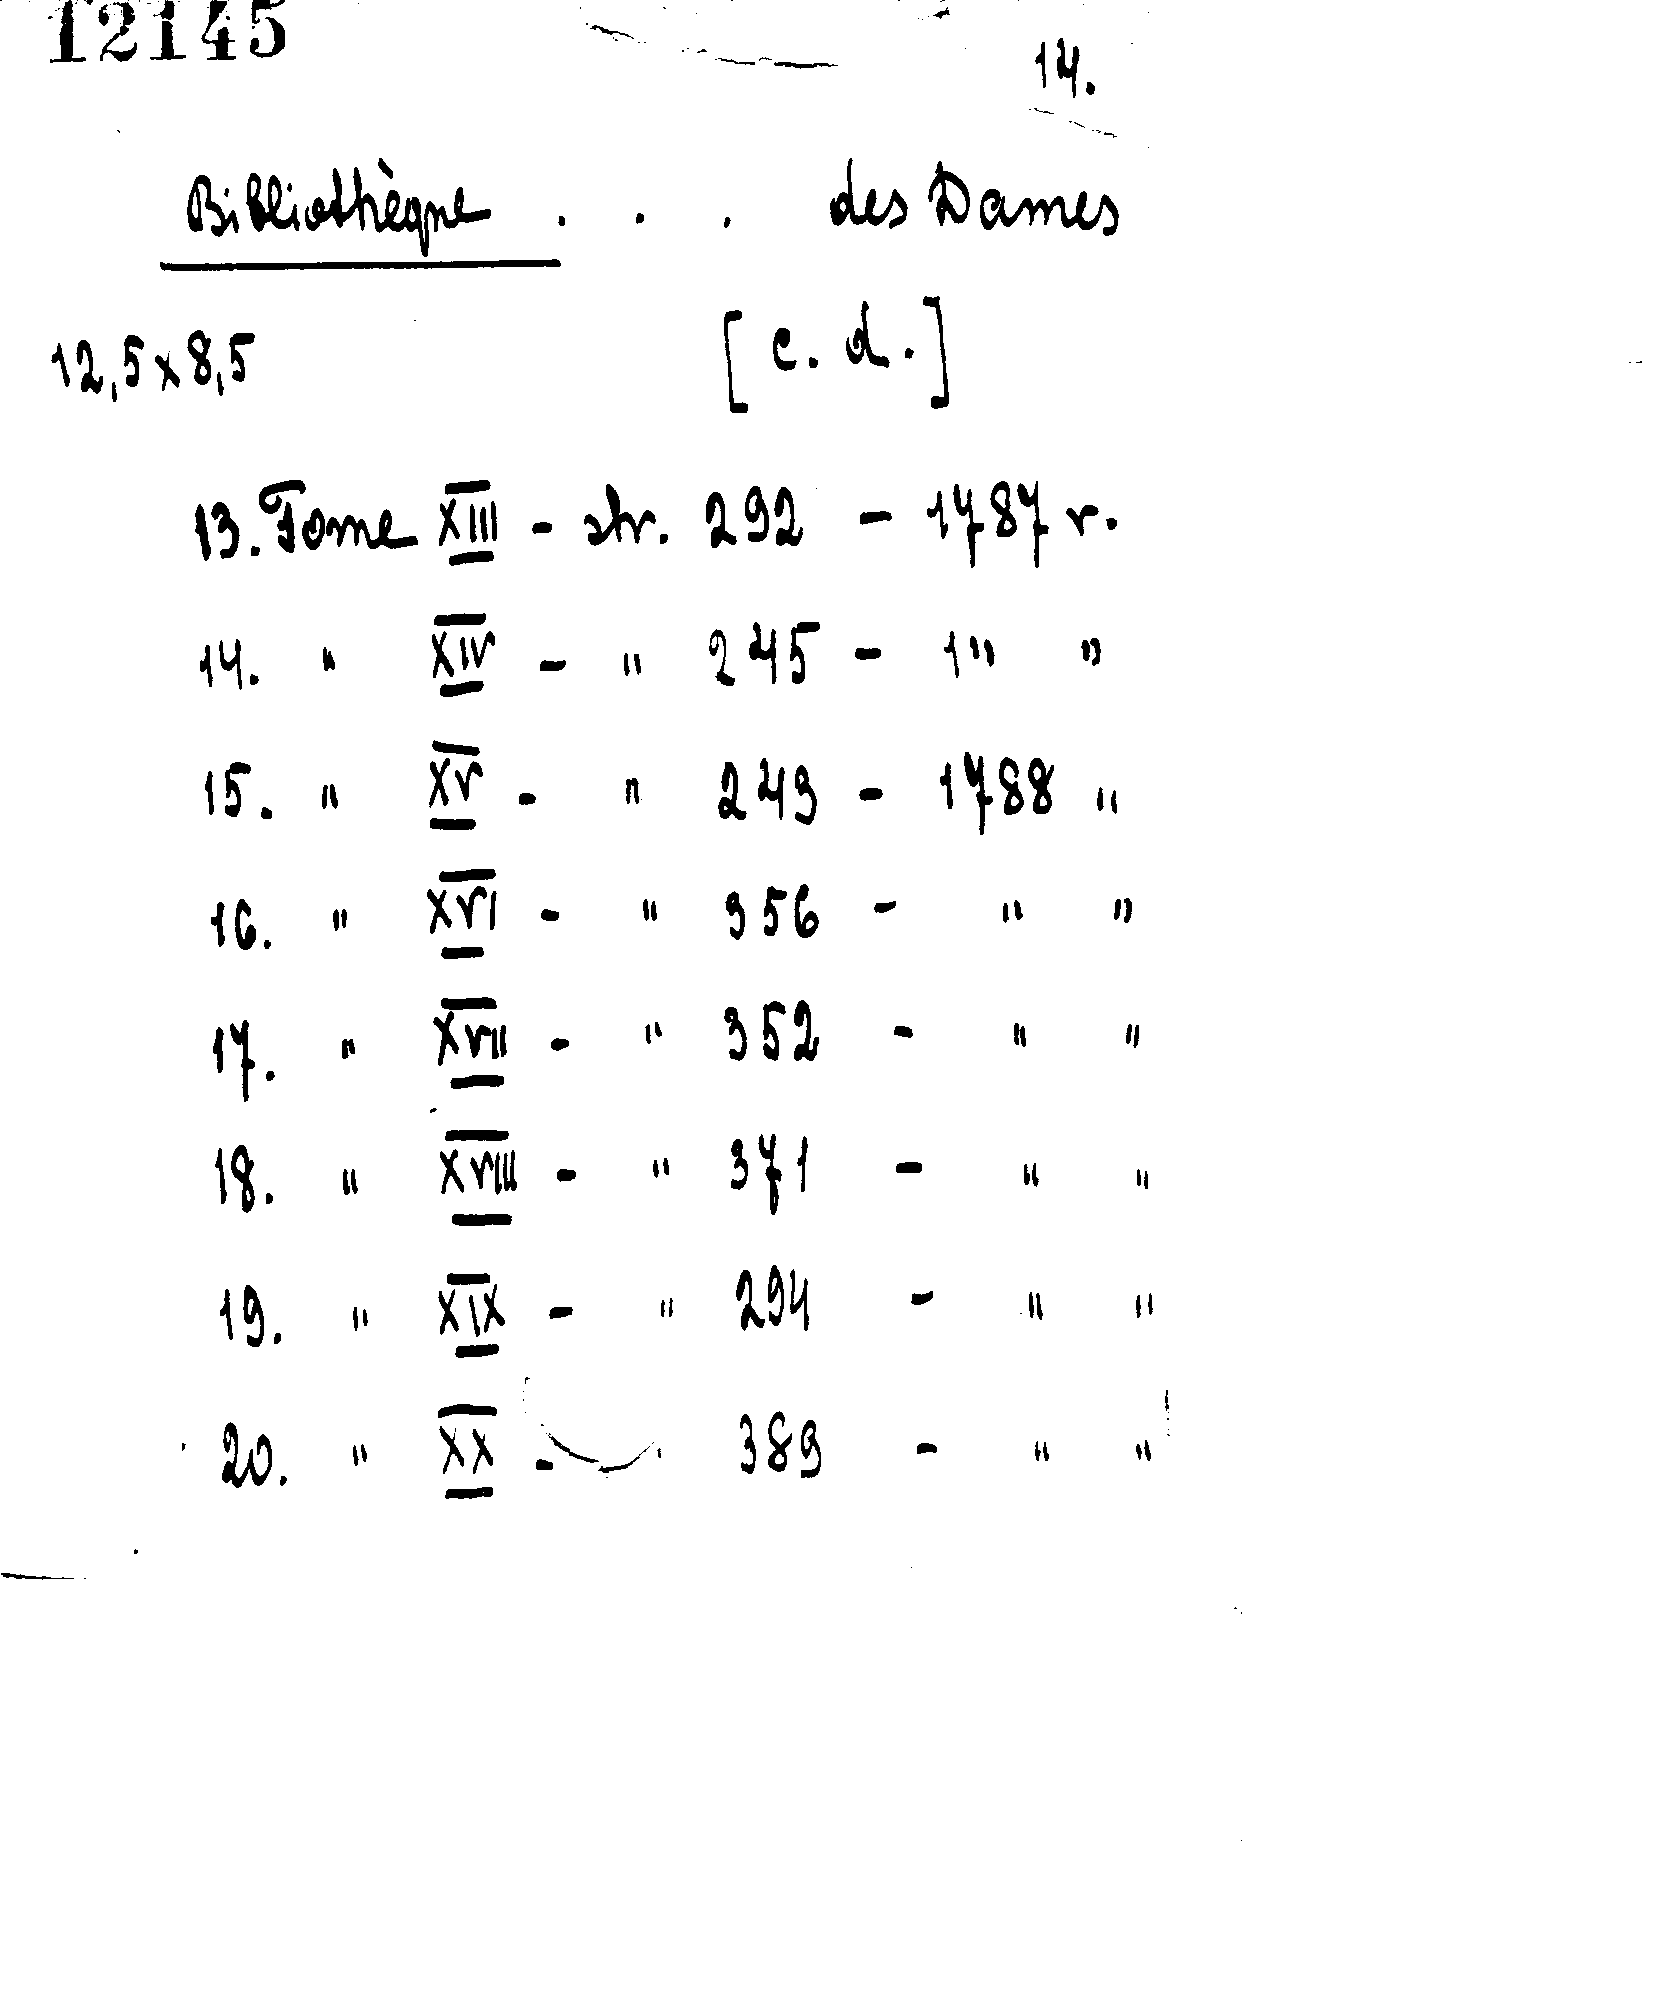 12145
14.
Bibliothèque . . . des Dames
12,5 x 8,5 [c. d.]
13. Tome XIII - str. 292 - 1787 r.
14. " XIV - " 245 - 1 " "
15. " XV - " 243 - 1788 "
16. " XVI - " 356 - " "
17. " XVII - " 352 - " "
18. " XVIII - " 371 - " "
19. " XIX - " 294 - " "
20. " XX - " 389 - " "